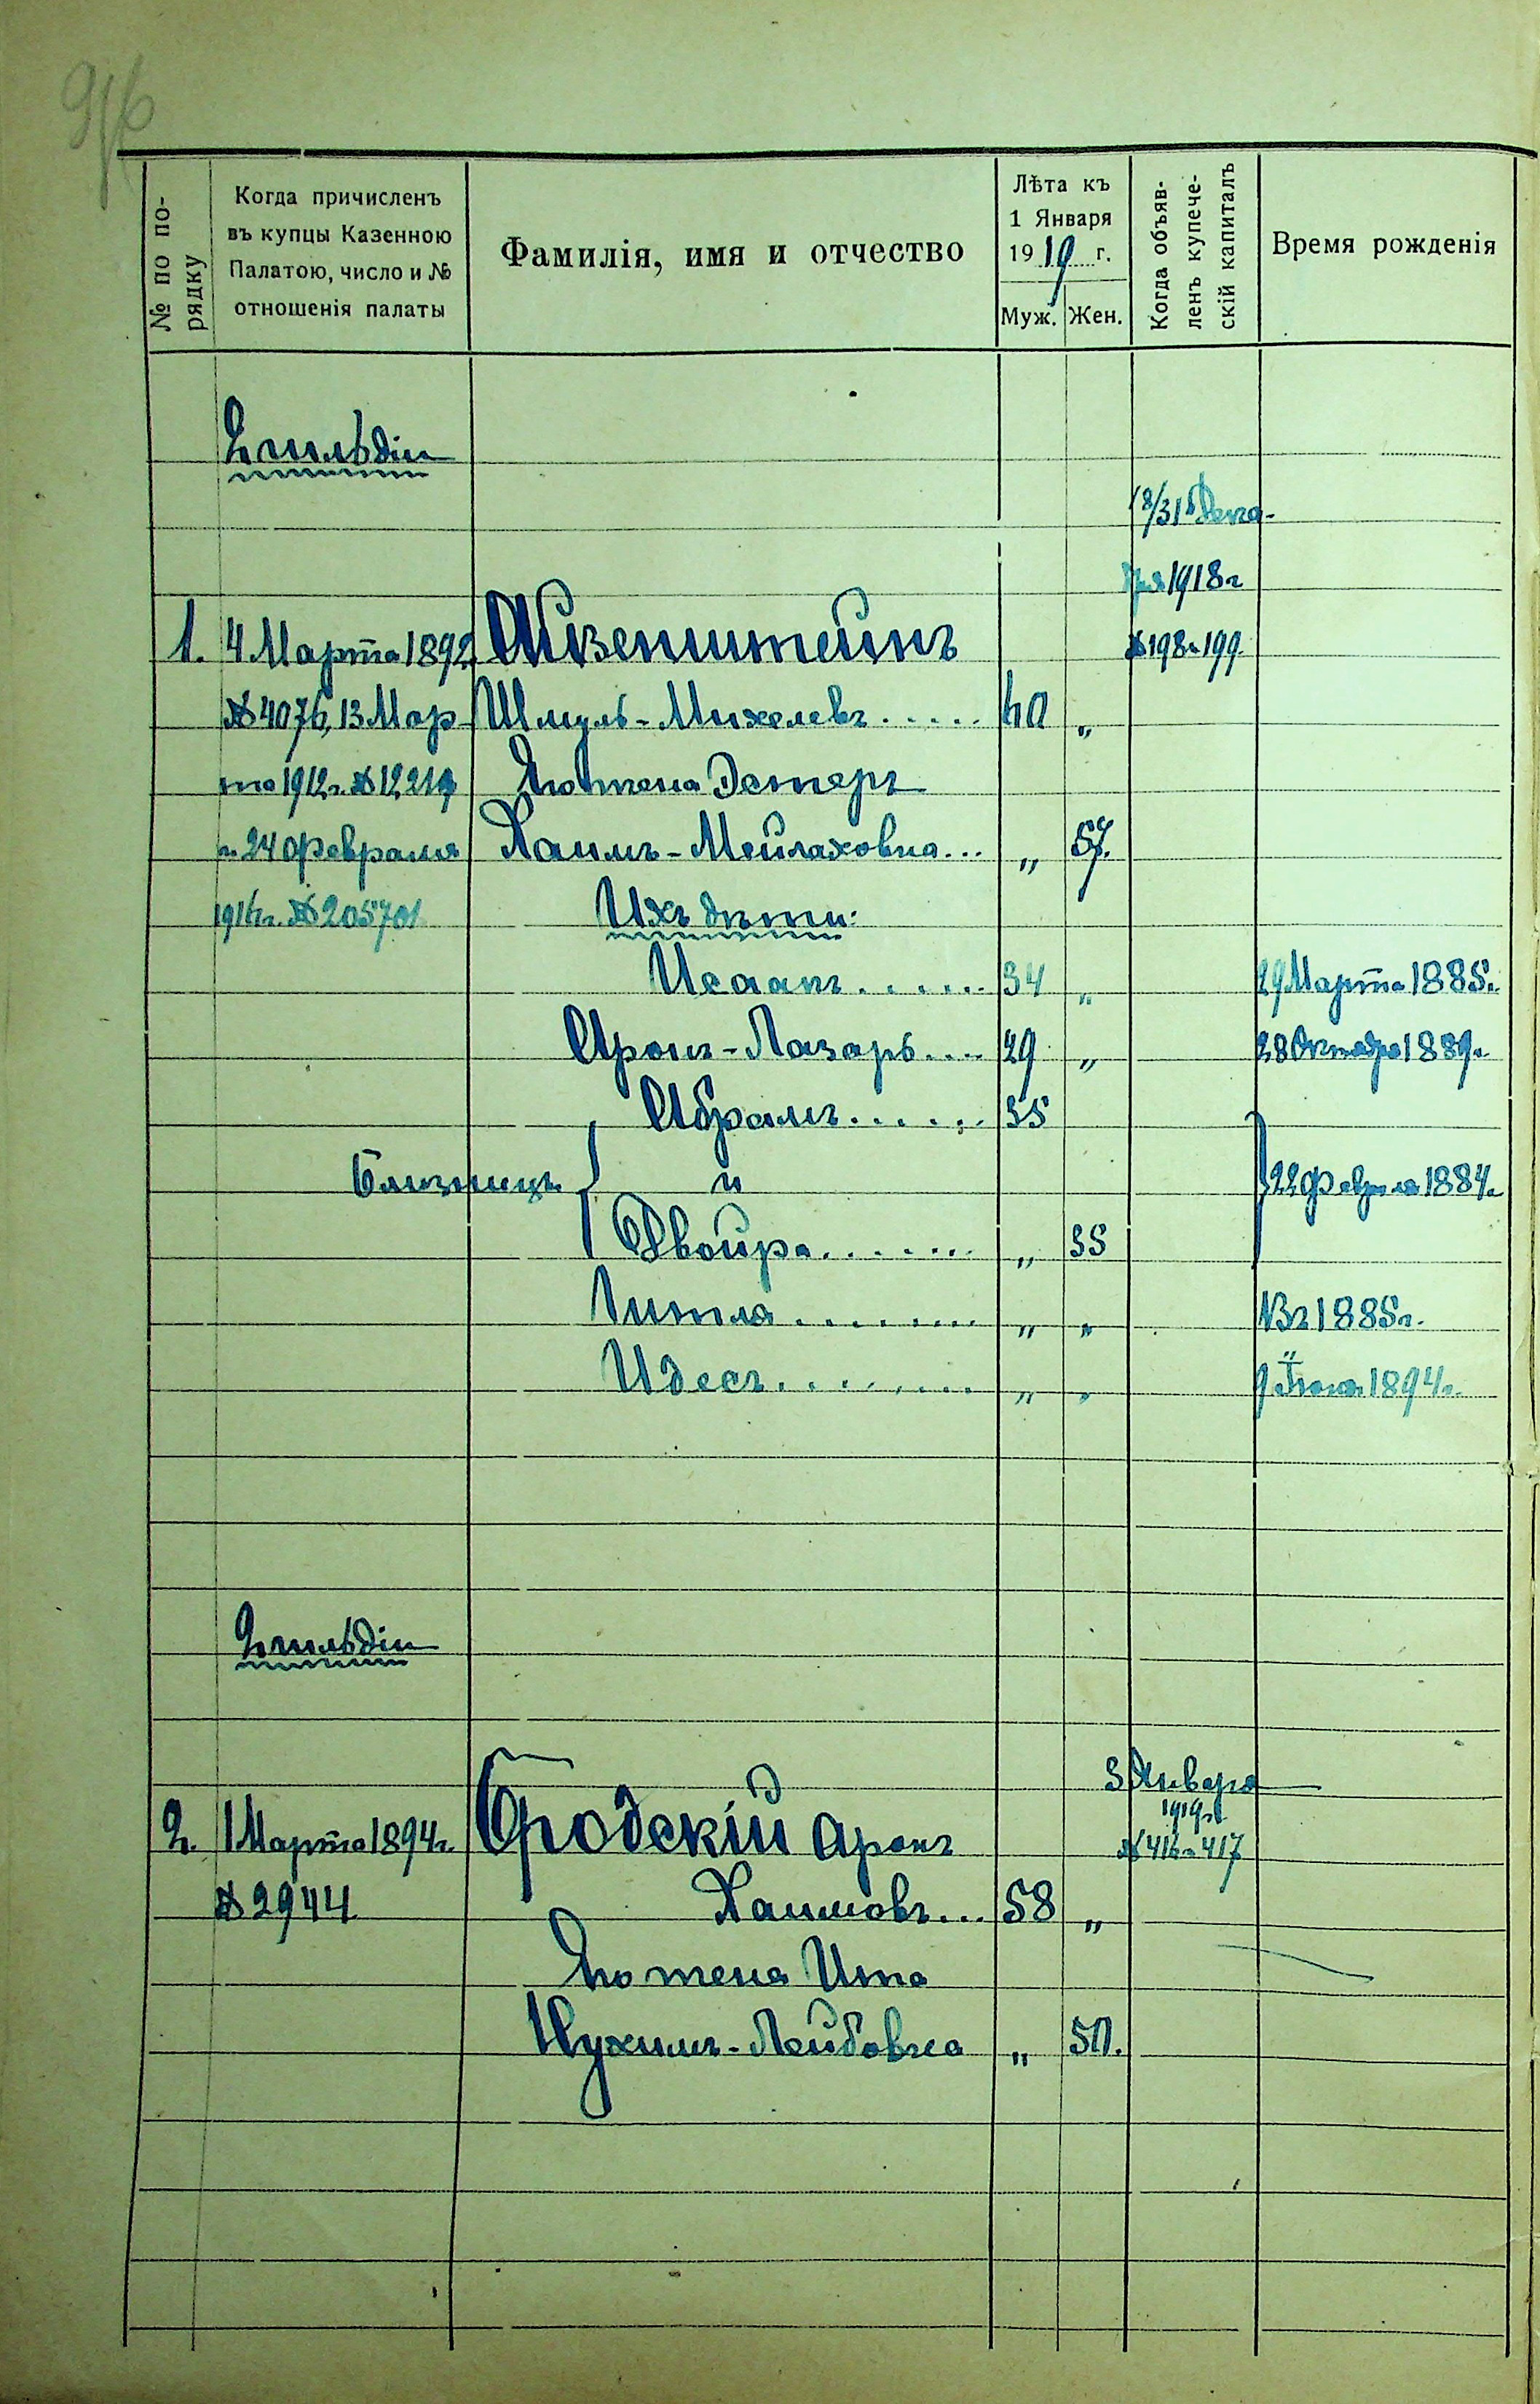 № по по-
рядку
Когда причисленъ
въ купцы Казенною
Палатою, число и №
отношенія палаты
Фамилія, имя и отчество
Лѣта къ
1 Января
1919 г.
Муж. Жен.
Когда объяв-
ленъ купече-
скій капиталъ
Время рожденія
2 гильдіи
18/31 Дека-
бря 1918 г
1. 4 Марта 1892 Айзенштейнъ № 198 и 199.
№ 4076, 13 Мар- Шмуль-Михелевъ..... 60 „
та 1912 г. № 12219 Его жена Эстеръ
и 24 Февраля Хаимъ-Мейлаховна... „ 57.
1916 г. № 205701 Ихъ дѣти:
Исаакъ...... 34 „ 29 Марта 1885 г.
Аронъ-Лазарь.... 29 „ 28 Октября 1889 г.
Абрамъ...... 35
Близнецы и 22 Февраля 1884 г.
Двойра....... „ 35
Гитля........ „ „ Въ 1885 г.
Идесъ........ „ „ 9 1894 г.
2 гильдіи
3 Января
1919 г.
2. 1 Марта 1894 г. Бродскій Аронъ № 416 и 417
№ 2944 Хаимовъ... 58 „
Его жена Ита
Нухимъ-Лейбовна „ 50.